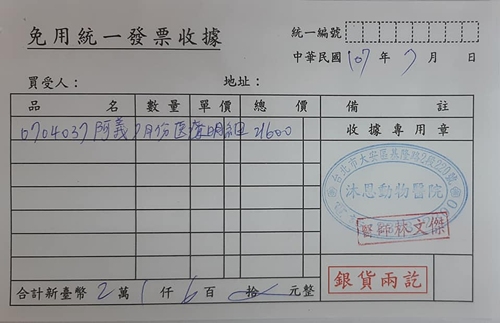 免用統一發票收據
統一編號
中華民國 107 年 7 月 日
買受人： 地址：
品名 數量 單價 總價 備註
0704037 阿義 7月份醫療明細 21600
收據專用章
台北市大安區基隆路2段220號
沐恩動物醫院
醫師林文傑
銀貨兩訖
合計新臺幣 2 萬 1 仟 6 百 拾 元整